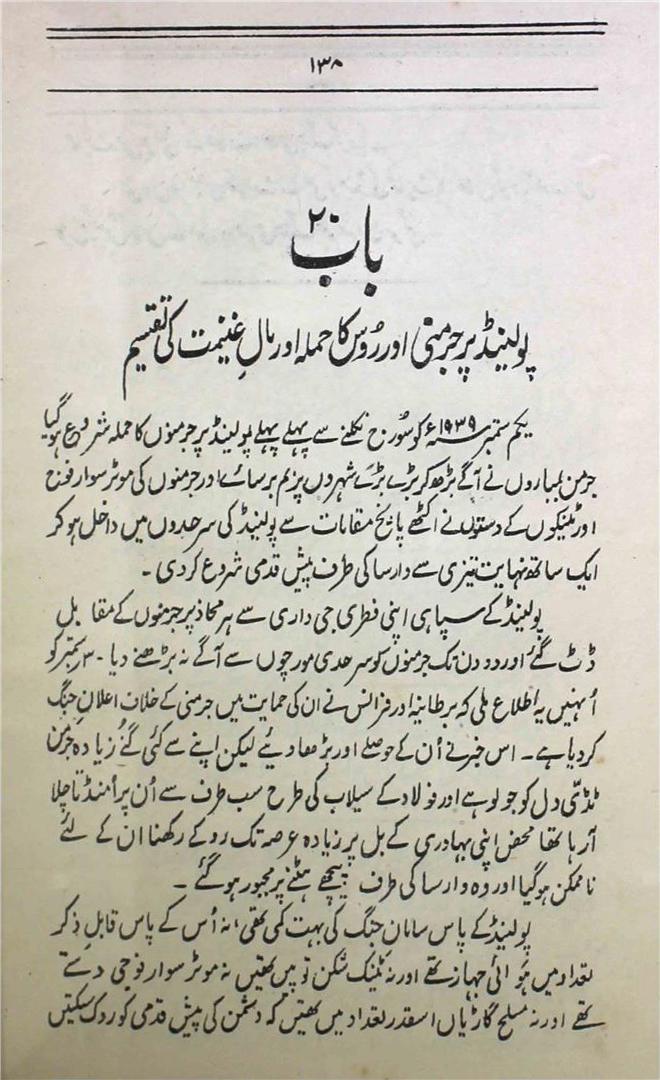 ۱۳۸
باب ۲۰
پولینڈ پر جرمنی اور رُوس کا حملہ اور مالِ غنیمت کی تقسیم
یکم ستمبر ۱۹۳۹ء کو سُورج نکلنے سے پہلے پہلے پولینڈ پر جرمنوں کا حملہ شروع ہو گیا
جرمن بمباروں نے آگے بڑھ کر بڑے بڑے شہروں پر بم برسائے اور جرمنوں کی موٹر سوار فوج
اور ٹینکوں کے دستوں نے اکٹھے پانچ مقامات سے پولینڈ کی سرحدوں میں داخل ہو کر
ایک ساتھ نہایت تیزی سے وارسا کی طرف پیش قدمی شروع کر دی۔
پولینڈ کے سپاہی اپنی فطری جی داری سے ہر محاذ پر جرمنوں کے مقابل
ڈٹ گئے اور دو دن تک جرمنوں کو سرحدی مورچوں سے آگے نہ بڑھنے دیا۔ ۳ ستمبر کو
اُنہیں یہ اطلاع ملی کہ برطانیہ اور فرانس نے ان کی حمایت میں جرمنی کے خلاف اعلانِ جنگ
کر دیا ہے۔ اس خبر نے اُن کے حوصلے اور بڑھا دیئے لیکن اپنے سے کئی گُنے زیادہ جرمن
ٹڈی دل کو جو لوہے اور فولاد کے سیلاب کی طرح سب طرف سے اُن پر اُمنڈتا چلا
آ رہا تھا محض اپنی بہادری کے بل پر زیادہ عرصہ تک روکے رکھنا ان کے لئے
ناممکن ہو گیا اور وہ وارسا کی طرف پیچھے ہٹنے پر مجبور ہو گئے۔
پولینڈ کے پاس سامان جنگ کی بہت کمی تھی، نہ اُس کے پاس قابلِ ذکر
تعداد میں ہوائی جہاز تھے اور نہ ٹینک شکن توپیں تھیں نہ موٹر سوار فوجی دستے
تھے اور نہ مسلح گاڑیاں اسقدر تعداد میں تھیں کہ دشمن کی پیش قدمی کو روک سکتیں